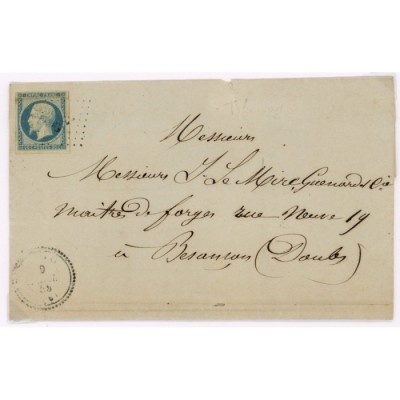 EMPIRE FRANC
Messieurs
Messieurs J. Le Mire, Guenard & Cie
maîtres de forges rue Neuve 19
à Besançon (Doubs)
9
58